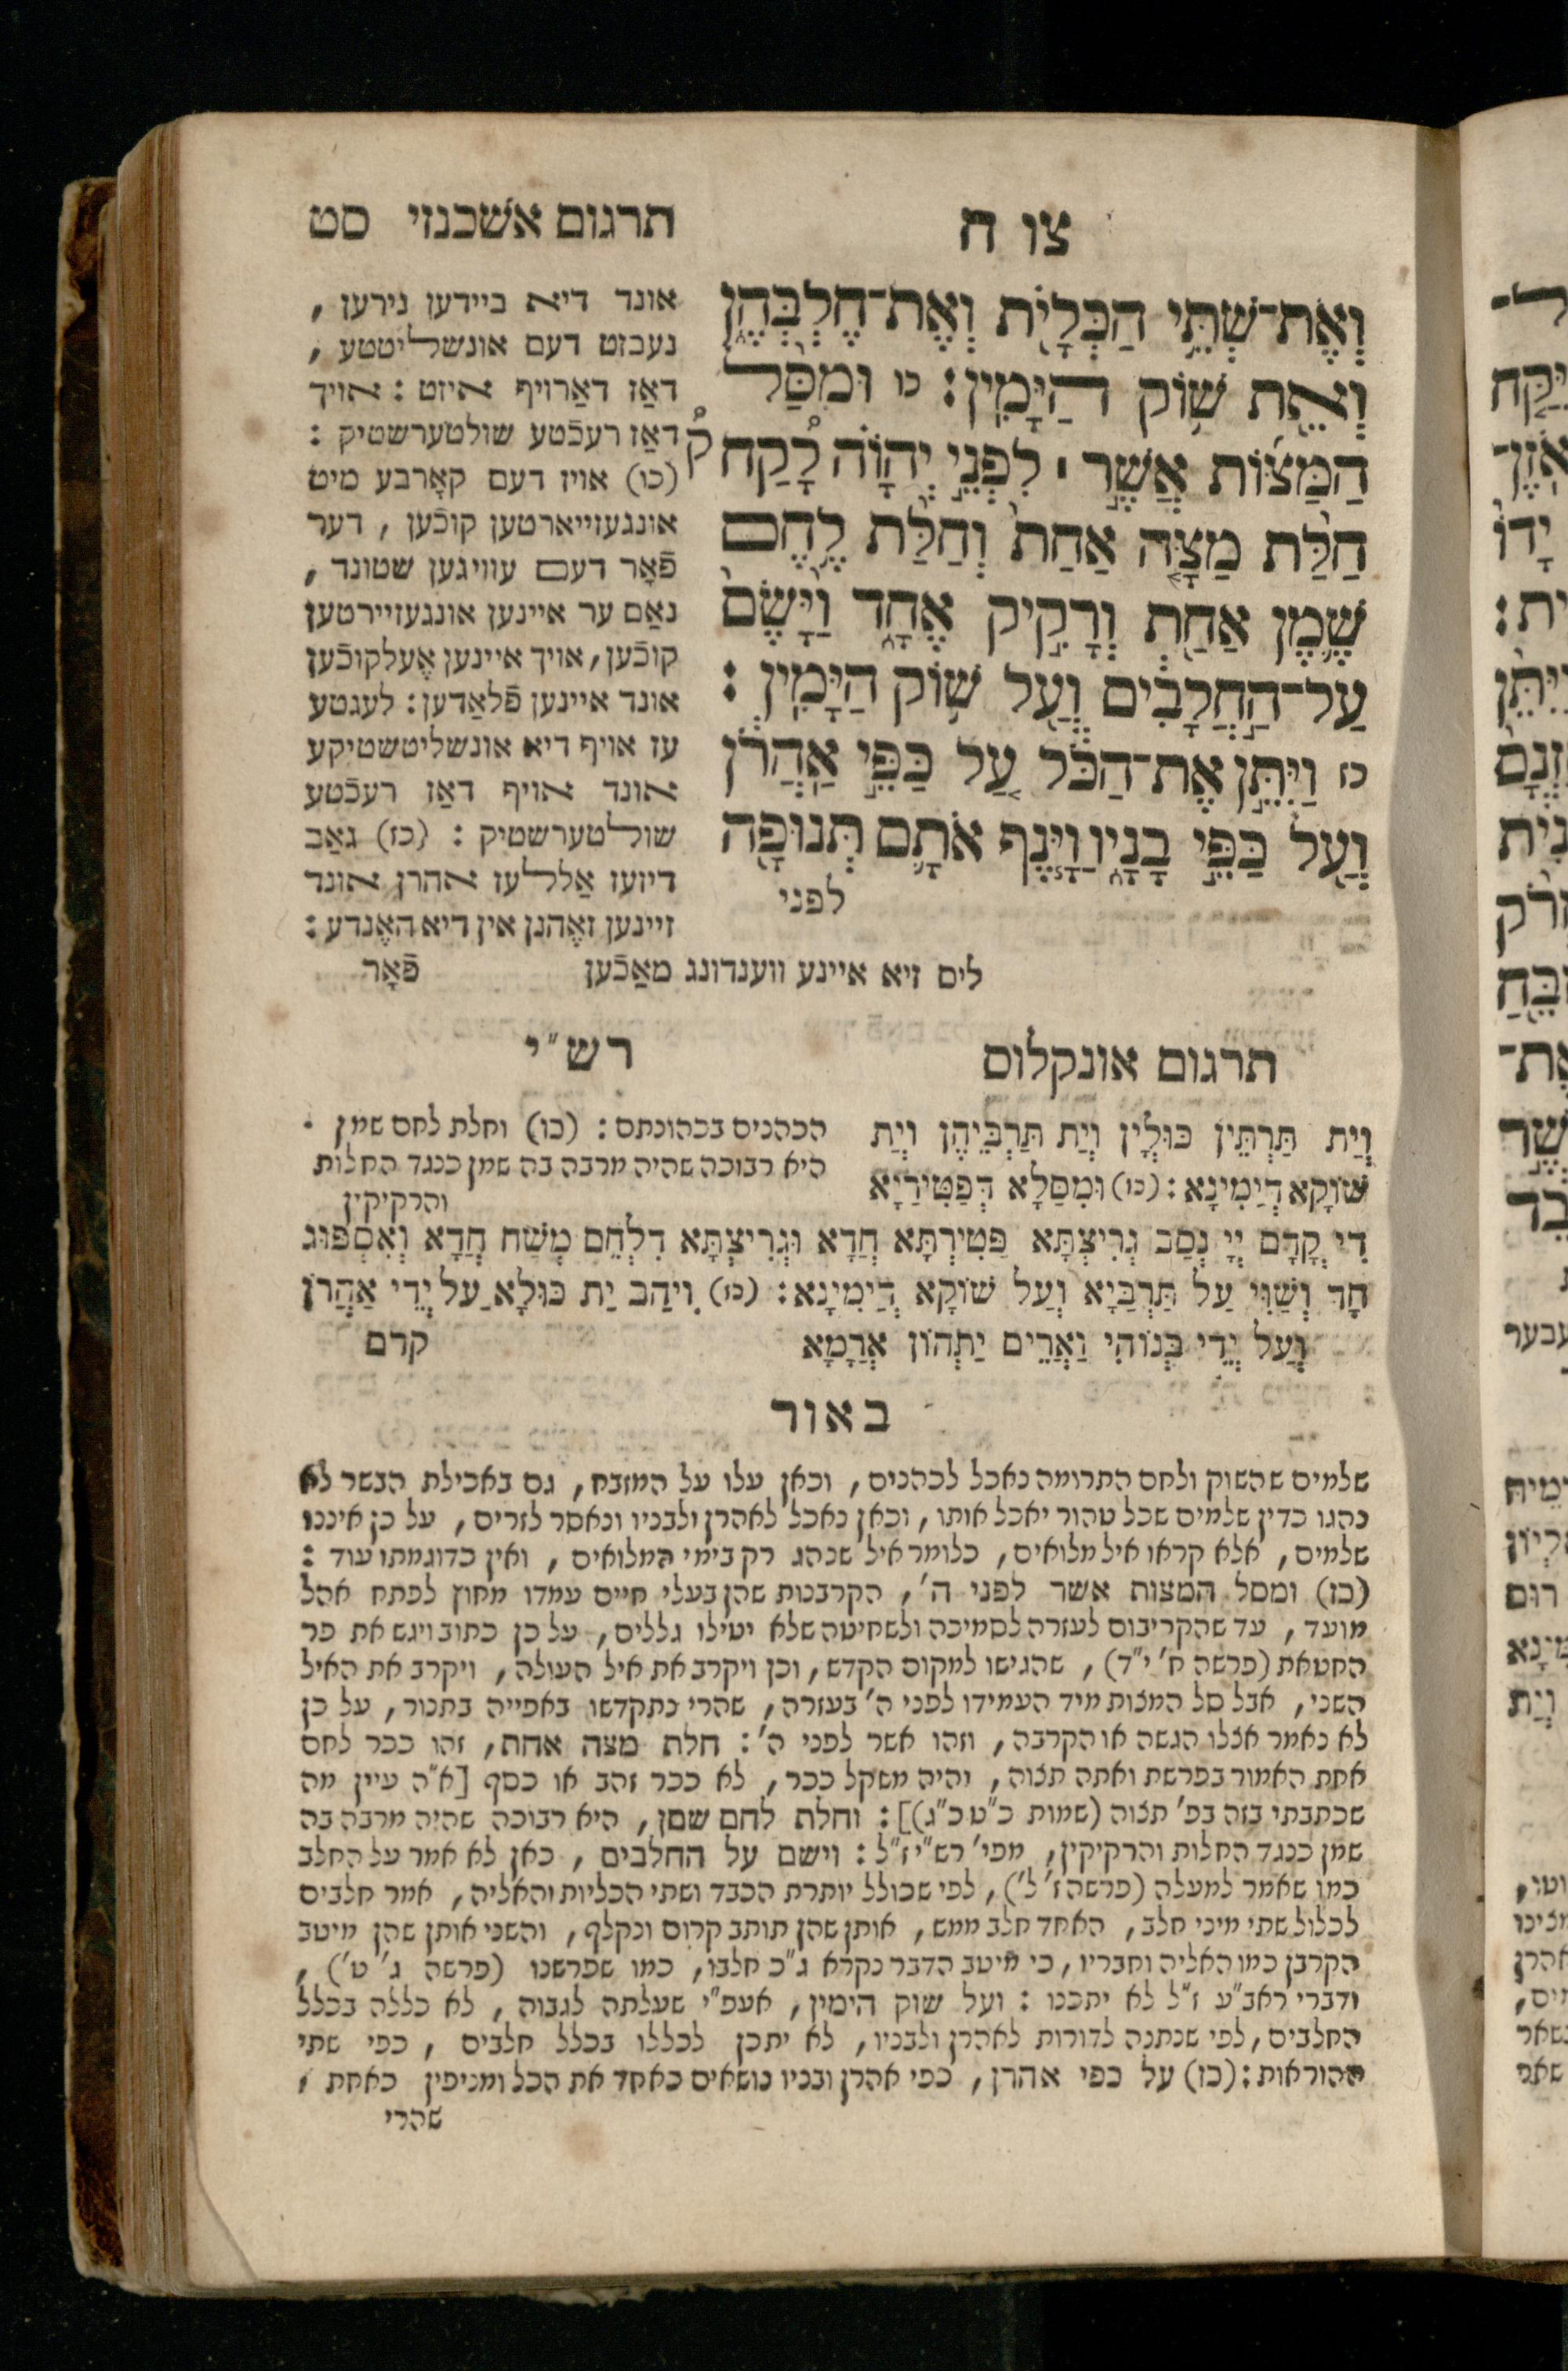 צו ח
וְאֶת־שְׁתֵּי הַכְּלָיֹת וְאֶת־חֶלְבְּהֶן
וְאֵת שׁוֹק הַיָּמִין: כו וּמִסַּל
הַמַּצּוֹת אֲשֶׁר ׀ לִפְנֵי יְהוָֹה לָקַח
חַלַּת מַצָּה אַחַת וְחַלַּת לֶחֶם
שֶׁמֶן אַחַת וְרָקִיק אֶחָד וַיָּשֶׂם
עַל־הַחֲלָבִים וְעַל שׁוֹק הַיָּמִין:
כז וַיִּתֵּן אֶת־הַכֹּל עַל כַּפֵּי אַהֲרֹן
וְעַל כַּפֵּי בָנָיו וַיָּנֶף אֹתָם תְּנוּפָה
לפני
תרגום אשכנזי סט
אונד דיא ביידען נירען,
נעבזט דעם אונשליטטע,
דאַז דאַרויף איזט: אויך
דאַז רעכֿטע שולטערשטיק:
(כו) אויז דעם קאָרבע מיט
אונגעזייארטען קוכֿען, דער
פֿאָר דעם עוויגען שטונד,
נאַם ער איינען אונגעזיירטען
קוכֿען, אויך איינען אֶעלקוכֿען
אונד איינען פֿלאַדען: לעגטע
עז אויף דיא אונשליטשטיקע
אונד אויף דאַז רעכֿטע
שולטערשטיק: (כז) גאַב
דיזעז אַללעז אהרן אונד
זיינען זאֶהנן אין דיא האֶנדע:
ליס זיא איינע ווענדונג מאַכֿען פֿאָר
תרגום אונקלוס
וְיַת תַּרְתֵּין כּוּלְיָן וְיַת תַּרְבֵּיהֶן וְיַת
שׁוֹקָא דְיַמִינָא: (כו) וּמִסַּלָא דְּפַטִּירַיָא
רש"י
הכהנים בכהונתם: (כו) וחלת לחם שמן.
היא רבוכה שהיה מרבה בה שמן כנגד החלות
והרקיקין
דִי קֳדָם יְיָ נְסַב גְּרִיצְתָּא פַּטִירְתָּא חֲדָא וּגְרִיצְתָּא דִלְחֵם מְשַׁח חֲדָא וְאִסְפּוֹג
חָד וְשַׁוִּי עַל תַּרְבַּיָא וְעַל שׁוֹקָא דְּיַמִינָא: (כז) וִיהַב יַת כּוּלָּא עַל יְדֵי אַהֲרֹן
וְעַל יְדֵי בְּנוֹהִי וַאֲרֵים יַתְהוֹן אֲרָמָא קדם
באור
שלמים שהשוק ולחם התרומה נאכל לכהנים, וכאן עלו על המזבח, גם באכילת הבשר לא
נהגו כדין שלמים שכל טהור יאכל אותו, וכאן נאכל לאהרן ולבניו ונאסר לזרים, על כן איננו
שלמים, אלא קראו איל מלואים, כלומר איל שנהג רק בימי המלואים, ואין כדוגמתו עוד:
(כז) ומסל המצות אשר לפני ה', הקרבנות שהן בעלי חיים עמדו מחוץ לפתח אהל
מועד, עד שהקריבום לעזרה לסמיכה ולשחיטה שלא יטילו גללים, על כן כתוב ויגש את פר
החטאת (פרשה ח' י"ד), שהגישו למקום הקדש, וכן ויקרב את איל העולה, ויקרב את האיל
השני, אבל סל המצות מיד העמידו לפני ה' בעזרה, שהרי נתקדשו באפייה בתנור, על כן
לא נאמר אצלו הגשה או הקרבה, וזהו אשר לפני ה': חלת מצה אחת, זהו ככר לחם
אחת האמור בפרשת ואתה תצוה, והיה משקל ככר, לא ככר זהב או כסף [א"ה עיין מה
שכתבתי בזה בפ' תצוה (שמות כ"ט כ"ג)]: וחלת לחם שמן, היא רבוכה שהיה מרבה בה
שמן כנגד החלות והרקיקין, מפי' רש"י ז"ל: וישם על החלבים, כאן לא אמר על החלב
כמו שאמר למעלה (פרשה ז' ל'), לפי שכולל יותרת הכבד ושתי הכליות והאליה, אמר חלבים
לכלול שתי מיני חלב, האחד חלב ממש, אותן שהן תותב קרום ונקלף, והשני אותן שהן מיטב
הקרבן כמו האליה וחבריו, כי מיטב הדבר נקרא ג"כ חלבו, כמו שפרשנו (פרשה ג' ט'),
ודברי ראב"ע ז"ל לא יתכנו: ועל שוק הימין, אעפ"י שעלתה לגבוה, לא כללה בכלל
החלבים, לפי שנתנה לדורות לאהרן ולבניו, לא יתכן לכללו בכלל חלבים, כפי שתי
ההוראות: (כז) על כפי אהרן, כפי אהרן ובניו נושאים כאחד את הכל ומניפין כאחת,
שהרי